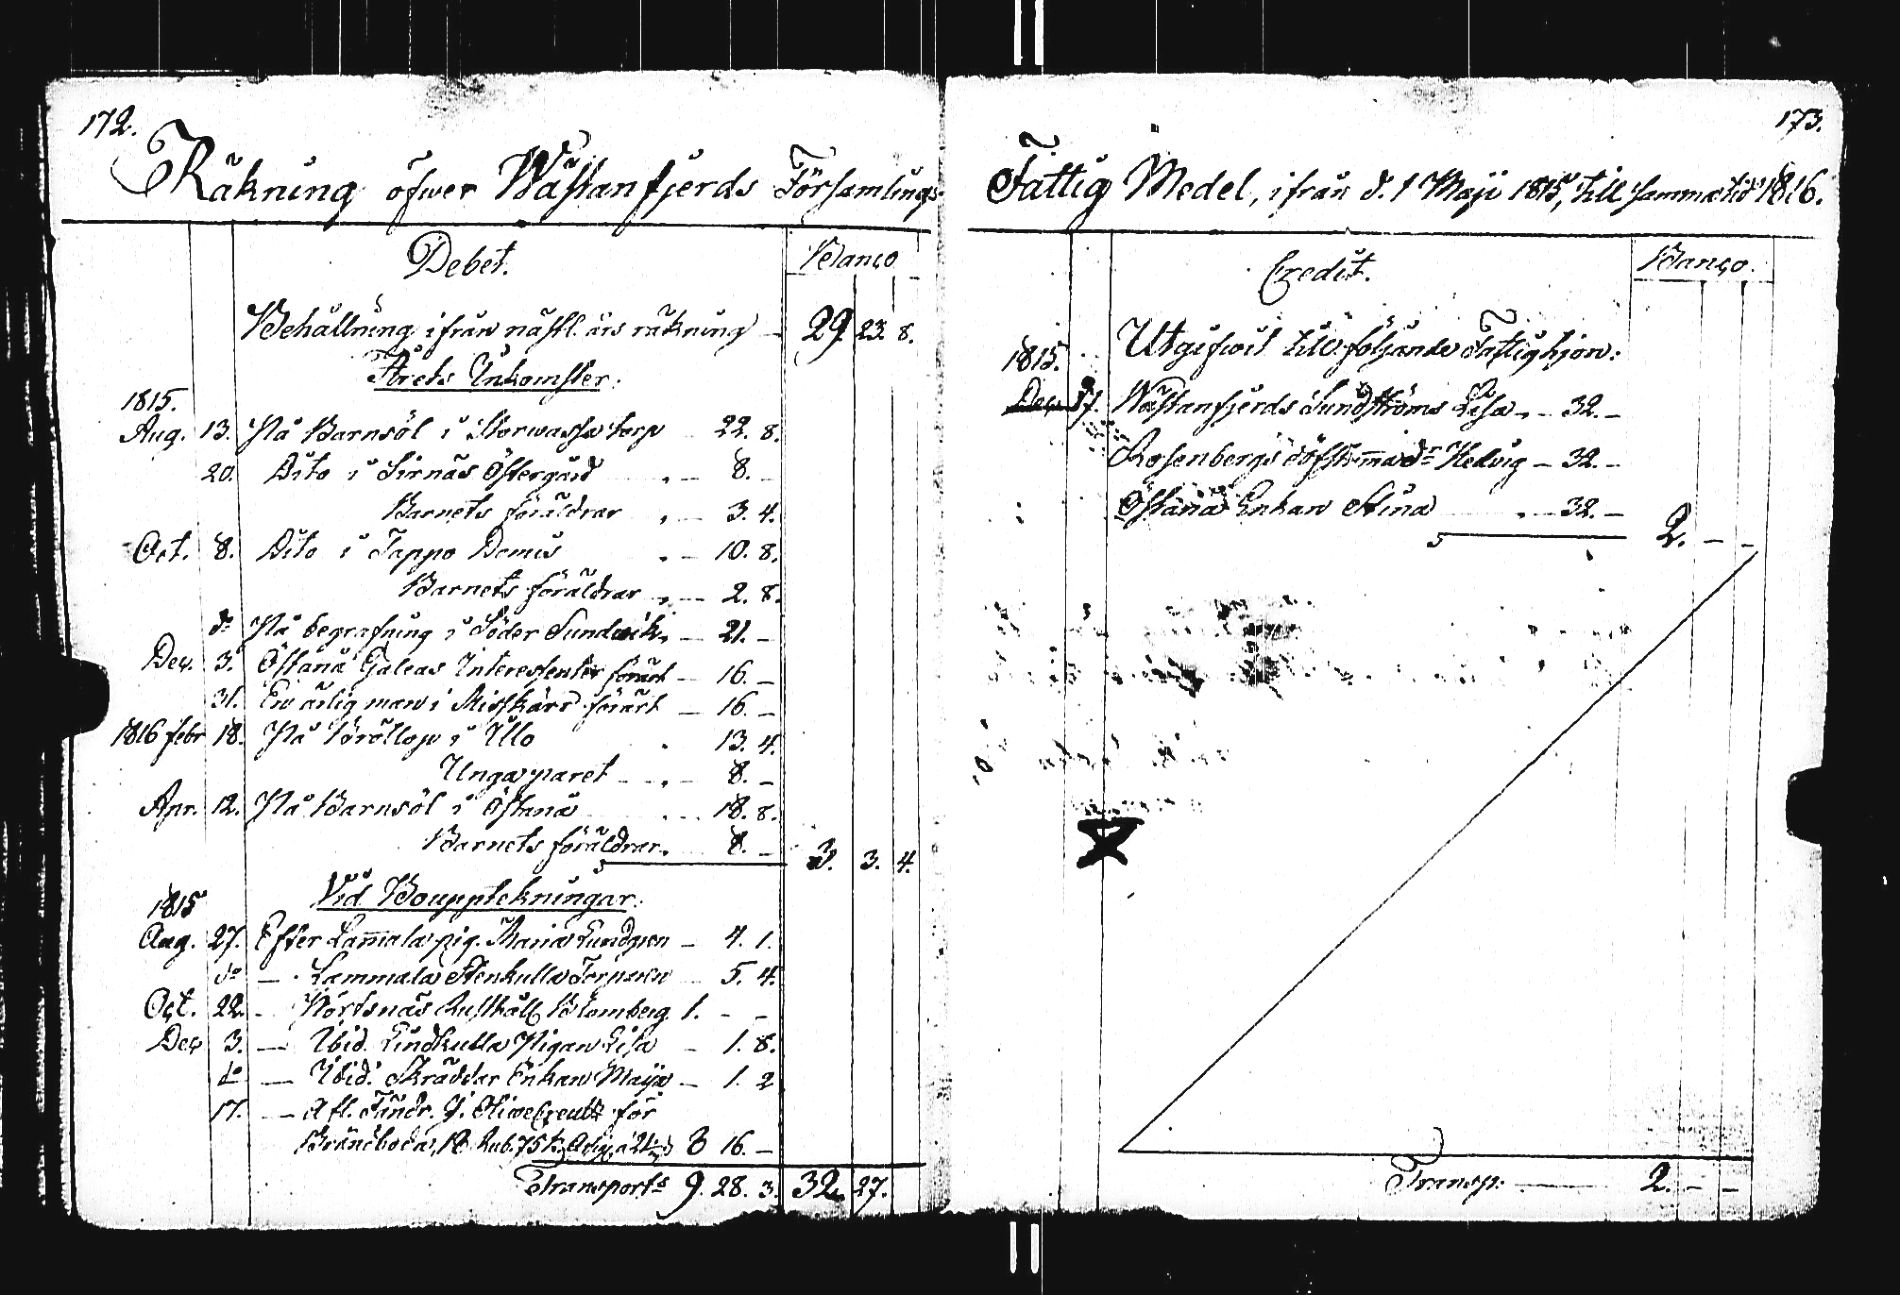 172.
Räkning öfwer Wästanfjerds Församlings
Debet. Banco
Behållning ifrån nästl. års räkning — 29. 23. 8.
Årets Inkomster:
1815.
Aug. 13. På Barnsöl i Storwassa torp — 22. 8.
20. Dito i Sirnäs Östergård — 8. –
Barnets föräldrar — 3. 4.
Oct. 8. Dito i Tappo Domis — 10. 8.
Barnets föräldrar — 2. 8.
do På begrafning i Söder Sundwik — 21. –
Dec. 3. Östanå Galeas Interessenter förärt — 16. –
31. En ärlig man i Miskärr förärt — 16. –
1816 febr 18. På bröllop i Illo 13. 4.
Unga paret — 8. –
Apr. 12. På Barnsöl i Östanå 18. 8.
Barnets föräldrar. 8. – 3. 3. 4.
Vid Bouppteckningar.
1815
Aug. 27. Efter Lammala pig. Maria Lundgren — 4. 1.
do — Lammala Stenkulla Torparen — 5. 4.
Oct. 22. – Nörtsnäs Rusthåll Blomberg 1. – –
Dec 3. — Ibid. Lindkulla Pigan Lisa – 1. 8.
do — Ibid. Skräddar Enkan Maija — 1. 2
17. — Afl. Fändr. G. Olivecreutz för
Brändboda, 12 Rub. 75 k. 8 16. –
Transport 9. 28. 3. 32. 27.
173.
Fattig Medel, ifrån d. 1 Maji 1815, till samma tid 1816.
Credit. Banco.
Utgifwit till följande Fattighjon:
1815.
Dec 17. Wästanfjerds Sundströms Lisa — 32. –
Rosenbergs Hedvig — 32. –
Östanå Enkan Stina — 32. – 2. – –
Transp: — 2. – –